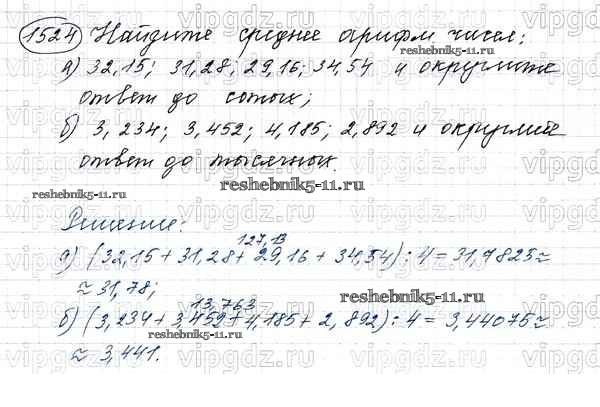 1524 Найдите среднее арифм чисел:
а) 32,15; 31,28; 29,16; 34,54 и округлите
ответ до сотых;
б) 3,234; 3,452; 4,185; 2,892 и округлите
ответ до тысячных.
Решение:
127,13
а) (32,15 + 31,28 + 29,16 + 34,54) : 4 = 31,7825 ≈
≈ 31,78;
13,763
б) (3,234 + 3,452 + 4,185 + 2,892) : 4 = 3,44075 ≈
≈ 3,441.
reshebnik5-11.ru
reshebnik5-11.ru
reshebnik5-11.ru
reshebnik5-11.ru
reshebnik5-11.ru
vipgdz.ru